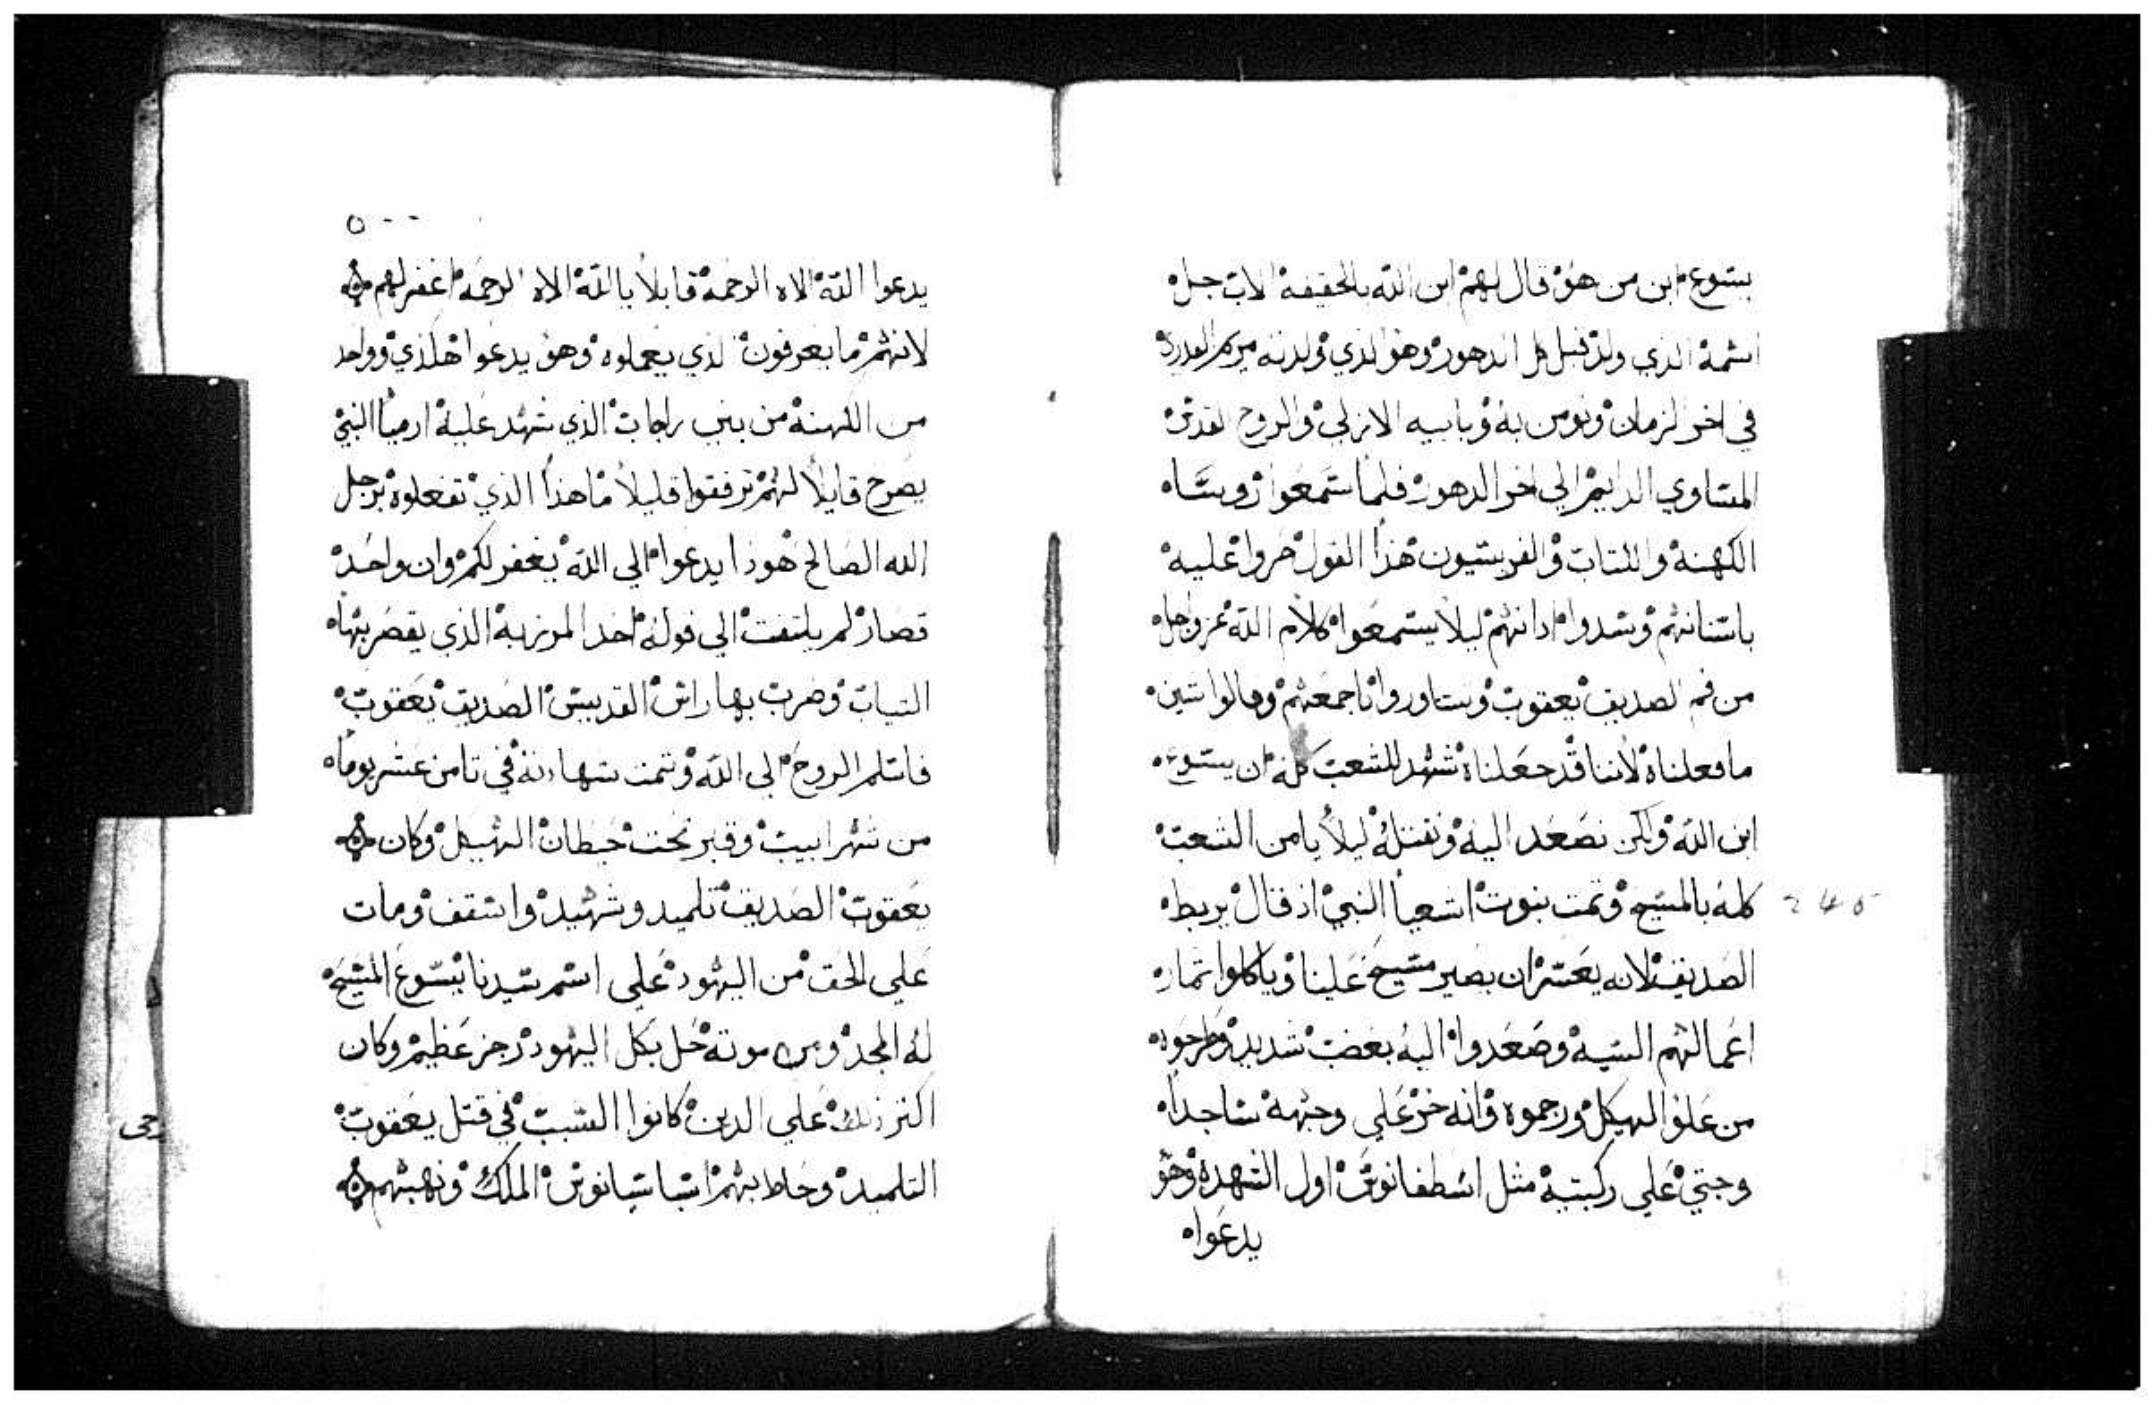 يسوع ابن من هو قال لهم ابن الله بالحقيقه الاب جل
اسمه الذي ولد قبل كل الدهور وهو الذي ولدته مريم العدرى
في اخر الزمان ونومن به وبابيه الازلي والروح القدس
المساوي الدايم الي اخر الدهور فلما سمعوا روساه
الكهنة والكتاب والفريسيون هذا القول صروا عليه
باسنانهم وسدوا ادانهم ليلا يستمعوا كلام الله عز وجل
من فم الصديق يعقوب وتشاوروا باجمعهم وقالوا شين
ما فعلناه لاننا قد جعلناه شهد للشعب كله ان يسوع
ابن الله ولكن نصعد اليه ونقتله ليلا يامن الشعب
كله بالمسيح وتمت نبوت اشعيا النبي اذ قال يربط
الصديق لانه يعسر ان يصير مسيح علينا وياكلوا ثمار
اعمالهم السيه وصعدوا اليه بغضب شديد وطرحوه
من علو الهيكل ورجموه وانه خر علي وجهه ساجدا
وجثي علي ركبتيه مثل اسطفانوس اول الشهدة وهو
يدعوا
245
٥٠٠
يدعوا الله الاه الرحمه قايلا يا الله الاه الرحمه اغفر لهم
لانهم ما يعرفون الذي يعملوه وهو يدعوا هكذي وواحد
من الكهنة من بني راجاب الذي شهد عليه ارميا النبي
يصرح قايلا لهم ترفقوا قليلا ما هذا الذي تفعلوه برجل
الله الصالح هودا يدعوا الي الله يغفر لكم وان واحد
قصار لم يلتفت الي قوله اخد المرزبه الذي يقصر بهاه
التياب وضرب بها راس القديس الصديق يعقوب
فاسلم الروح الي الله وتمت شهادته في تامن عشر يوما
من شهر ابيب وقبر تحت حيطان الهيكل وكان
يعقوب الصديق تلميد وشهيد واسقف ومات
علي الحق من اليهود علي اسم سيدنا يسوع المسيح
له المجد ومن موته حل بكل اليهود رجز عظيم وكان
اكتر ذلك علي الدين كانوا السبب في قتل يعقوب
التلميد وحاط بهم اسباسيانوس الملك ونهبهم